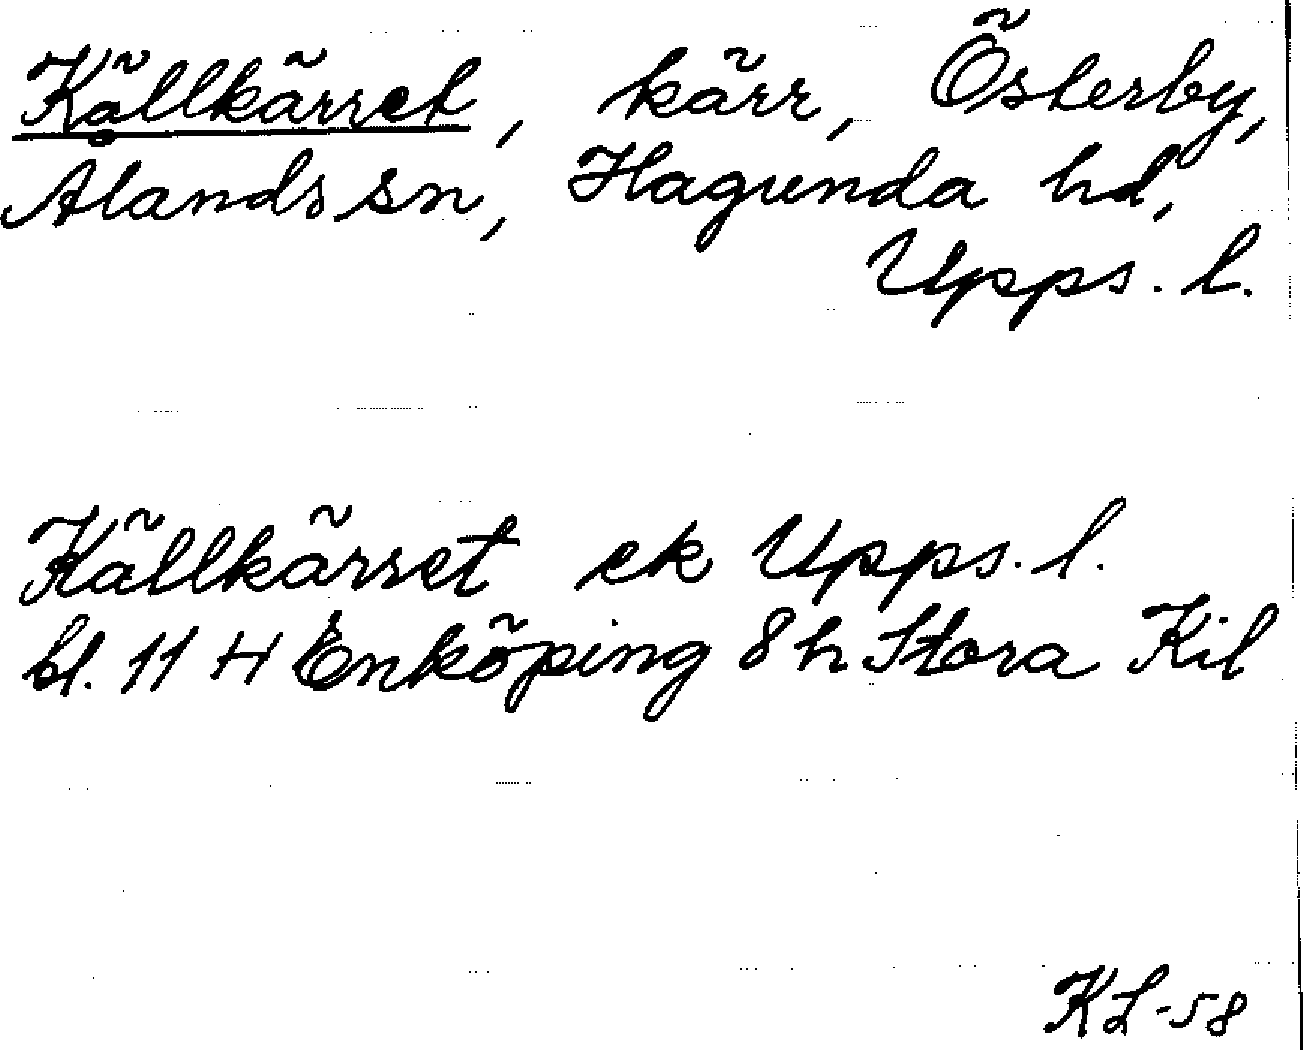 Källkärret, kärr, Österby,
Ålands sn, Hagunda hd,
Upps. l.
Källkärret ek Upps. l.
bl. 11 H Enköping 8 h Stora Kil
KL-58